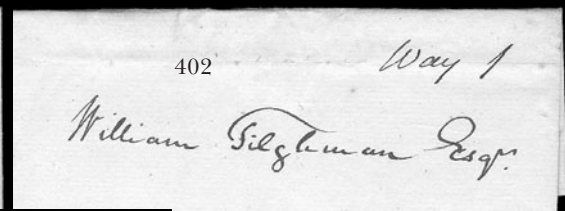 402
Way 1
William Tilghman Esqr.